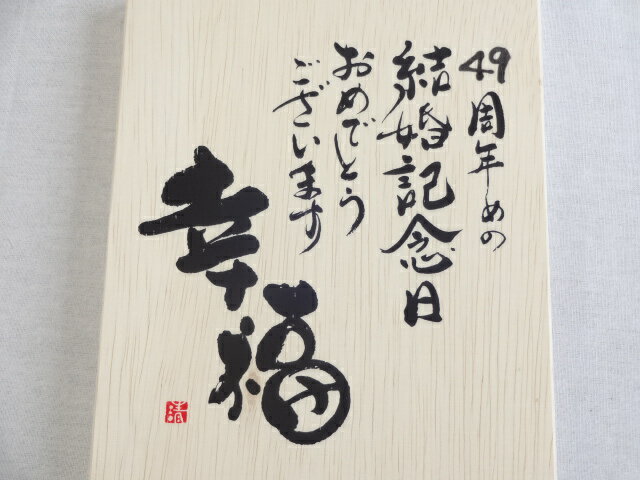 49周年めの
結婚記念日
おめでとう
ございます
幸福
清